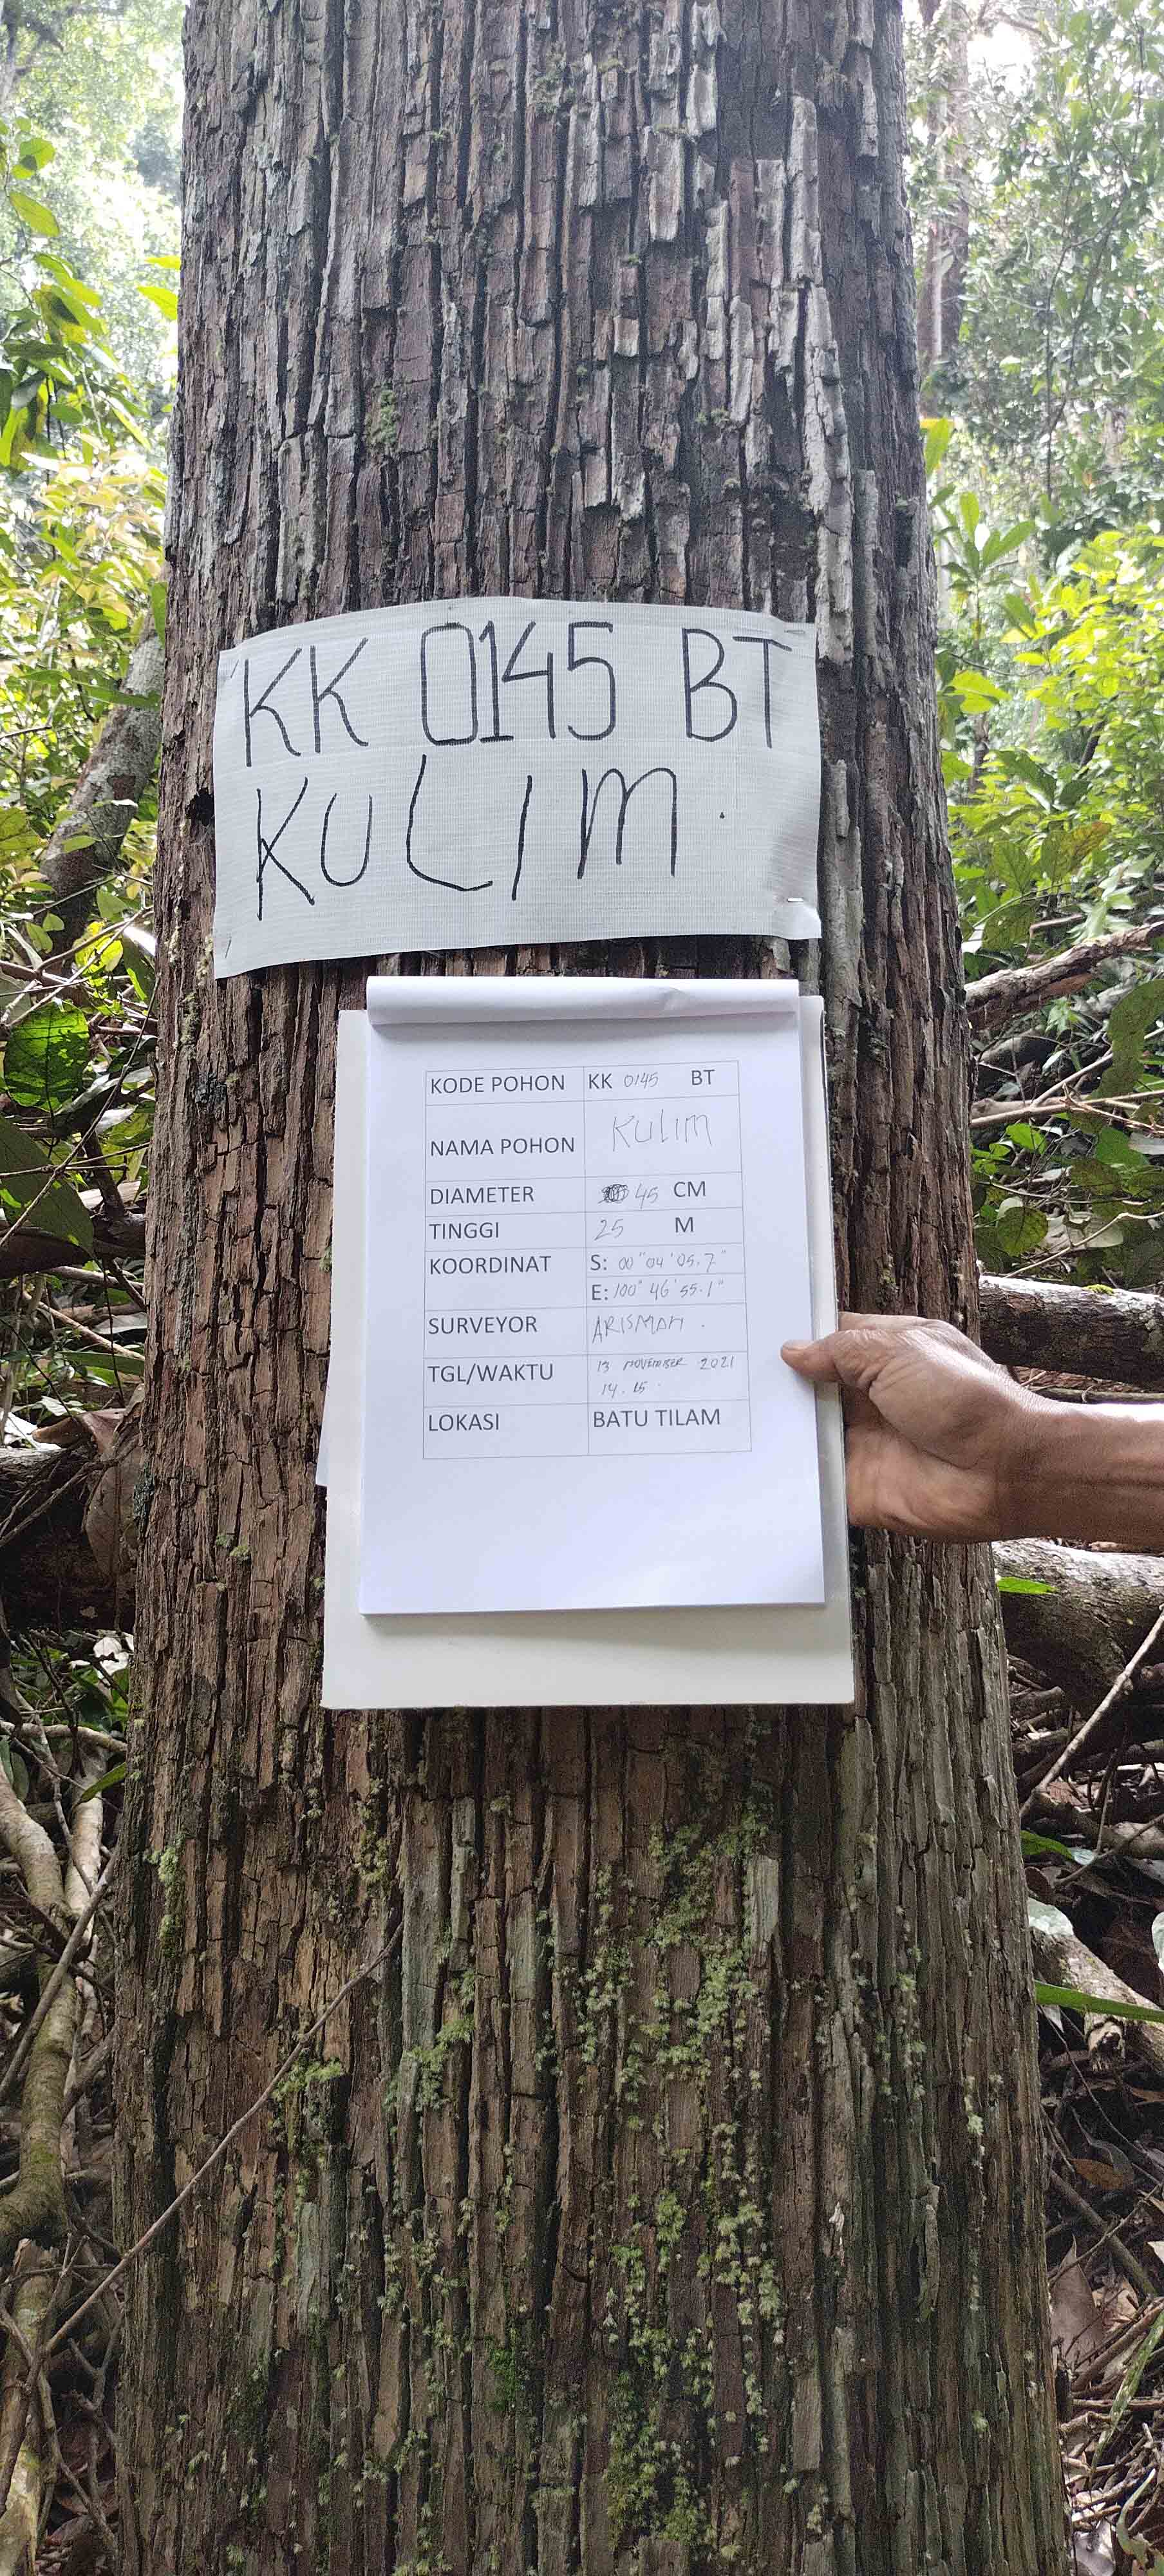 KK 0145 BT
KULIM.
KODE POHON KK 0145 BT
NAMA POHON KULIM
DIAMETER 45 CM
TINGGI 25 M
KOORDINAT S: 00°04'05.7"
E: 100°46'55.1"
SURVEYOR ARISMAN.
TGL/WAKTU 13 NOVEMBER 2021
14.15
LOKASI BATU TILAM